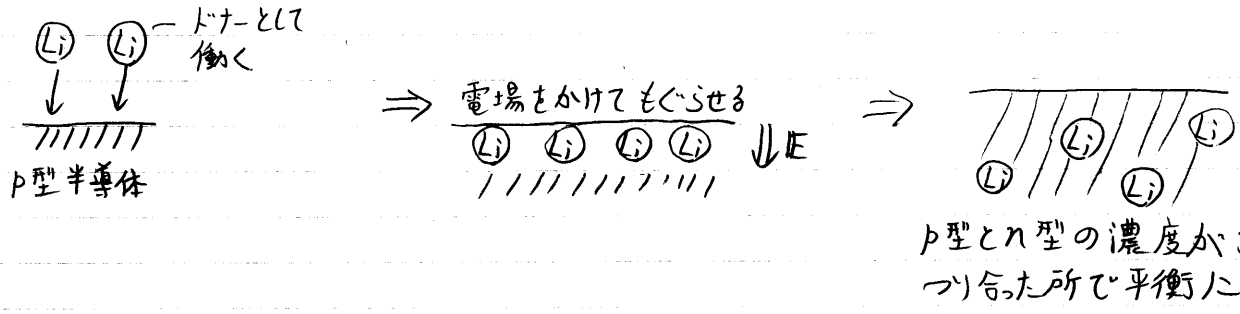 Li Li ードナーとして
働く
p型半導体
⇒ 電場をかけてもぐらせる
Li Li Li Li ⇓E
⇒
Li Li Li Li
p型とn型の濃度が
つり合った所で平衡に